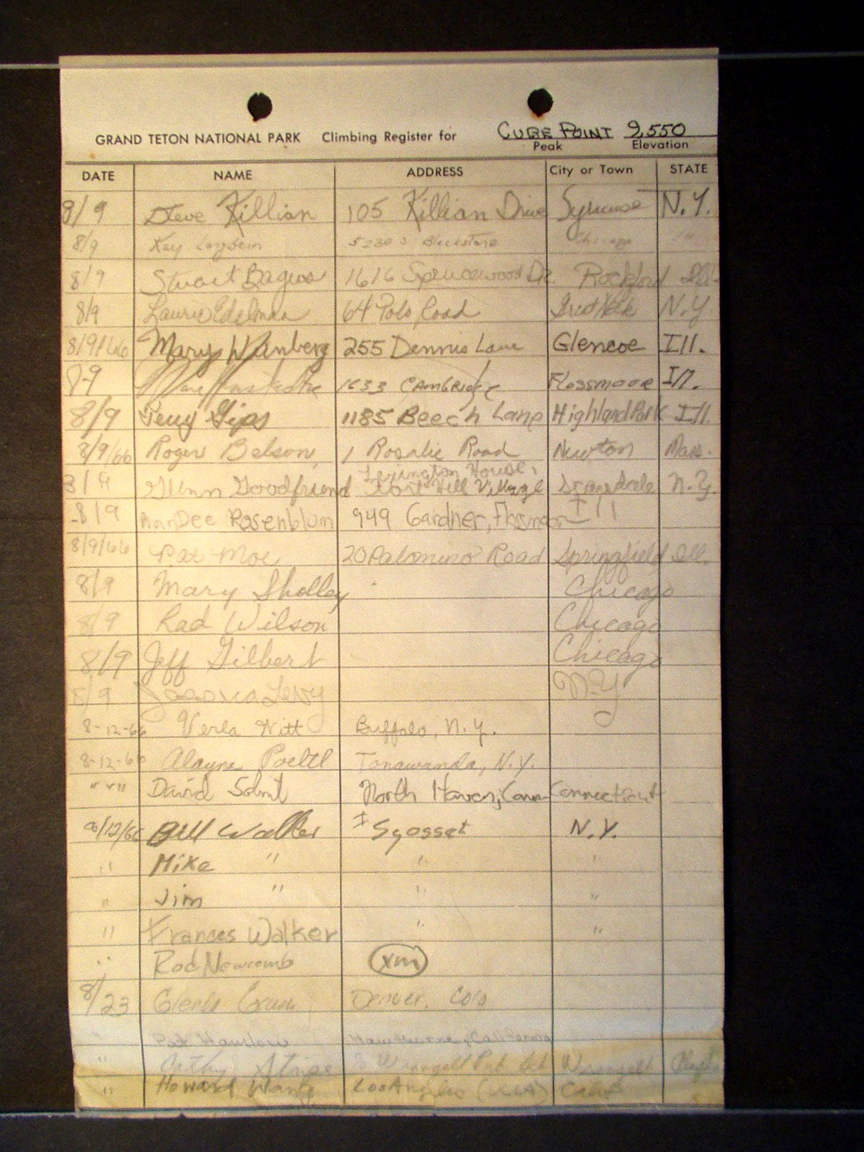 CUBE POINT 9,550
GRAND TETON NATIONAL PARK Climbing Register for
Peak Elevation
DATE NAME ADDRESS City or Town STATE
8/9 Steve Killian 105 Killian Drive Syracuse N.Y.
8/9 5230 S Blackstone Chicago "
8/9 Stuart 1616 Sprucewood Dr. Rockford Ill.
8/9 Laurie Edelman 64 Polo Road Great Neck N.Y
8/9/66 Mary Wanberg 255 Dennis Lane Glencoe Ill.
8-9 1633 CAMBRIDGE Flossmoor Ill.
8/9 Terry Gips 1185 Beech Lane Highland Park Ill.
8/9/66 Roger Belson 1 Rosalie Road Newton Mass.
Lexington House,
8/9 Glenn Goodfriend Fort Hill Village Scarsdale N.Y.
8/9 Dee Rosenblum 949 Gardner, Flossmoor Ill
8/9/66 Pat Moe 20 Palomino Road Springfield Ill.
8/9 Mary Sholley Chicago
8/9 Rad Wilson Chicago
8/9 Jeff Gilbert Chicago
8/9 Jessica Levy N.Y
8-12-66 Verla Witt Buffalo, N.Y.
8-12-66 Alayne Poeltl Tonawanda, N.Y.
" " " David North Haven, Conn Connecticut
8/12/66 Bill Walker Syosset N.Y.
" Mike " " "
" Jim " " "
" Frances Walker " "
" Rod Newcomb XM
8/23 Glenn Denver, Colo
" Hawthorne, California
" Cathy Wrangell
" Howard Los Angeles (UCLA) Calif